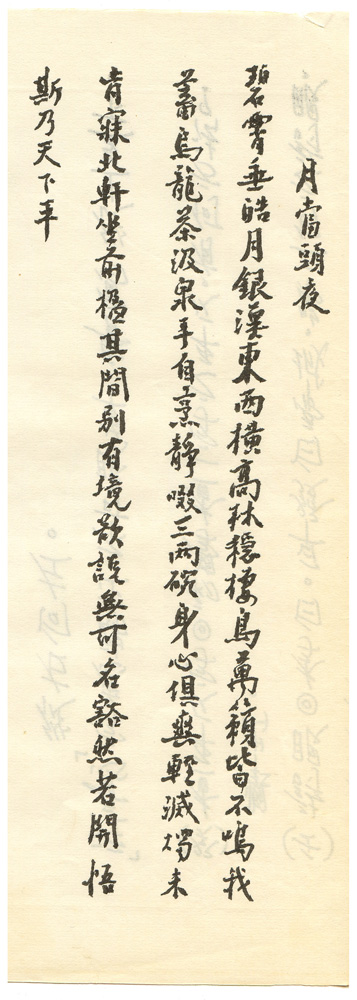 月當頭夜
碧霄垂皓月銀漢東西橫高林穩棲鳥萬籟皆不鳴我
蓄烏龍茶汲泉手自烹靜啜三兩碗身心俱爽輕滅燭未
肯寐北軒坐前楹其間別有境欲説無可名豁然若開悟
斯乃天下平